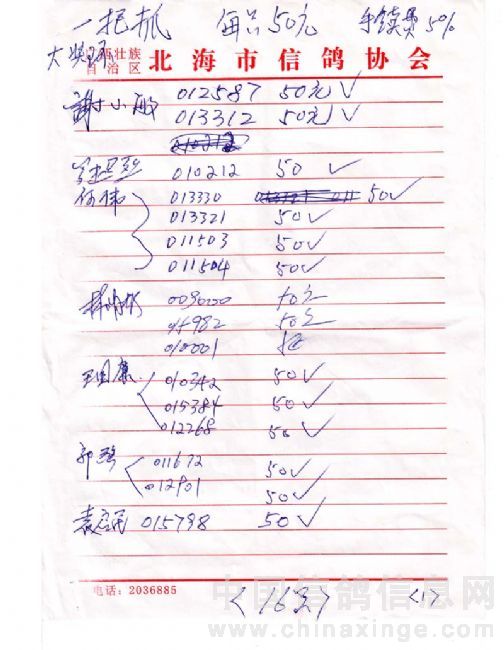 一把抓 每只50元 手续费5%
大奖环
广西壮族自治区 北海市信鸽协会
谢小敏 012587 50元✓
013312 50元✓
010212
010212 50 ✓
何伟 013330 50✓
013321 50✓
011503 50✓
011504 50✓
50元
982 50元
010001
王国康 010342 50✓
015384 50✓
012268 50✓
郭强 011672 50✓
012901 50✓
袁启明 015798 50✓
电话：2036885
<16只> <1>
中国信鸽信息网
www.chinaxinge.com